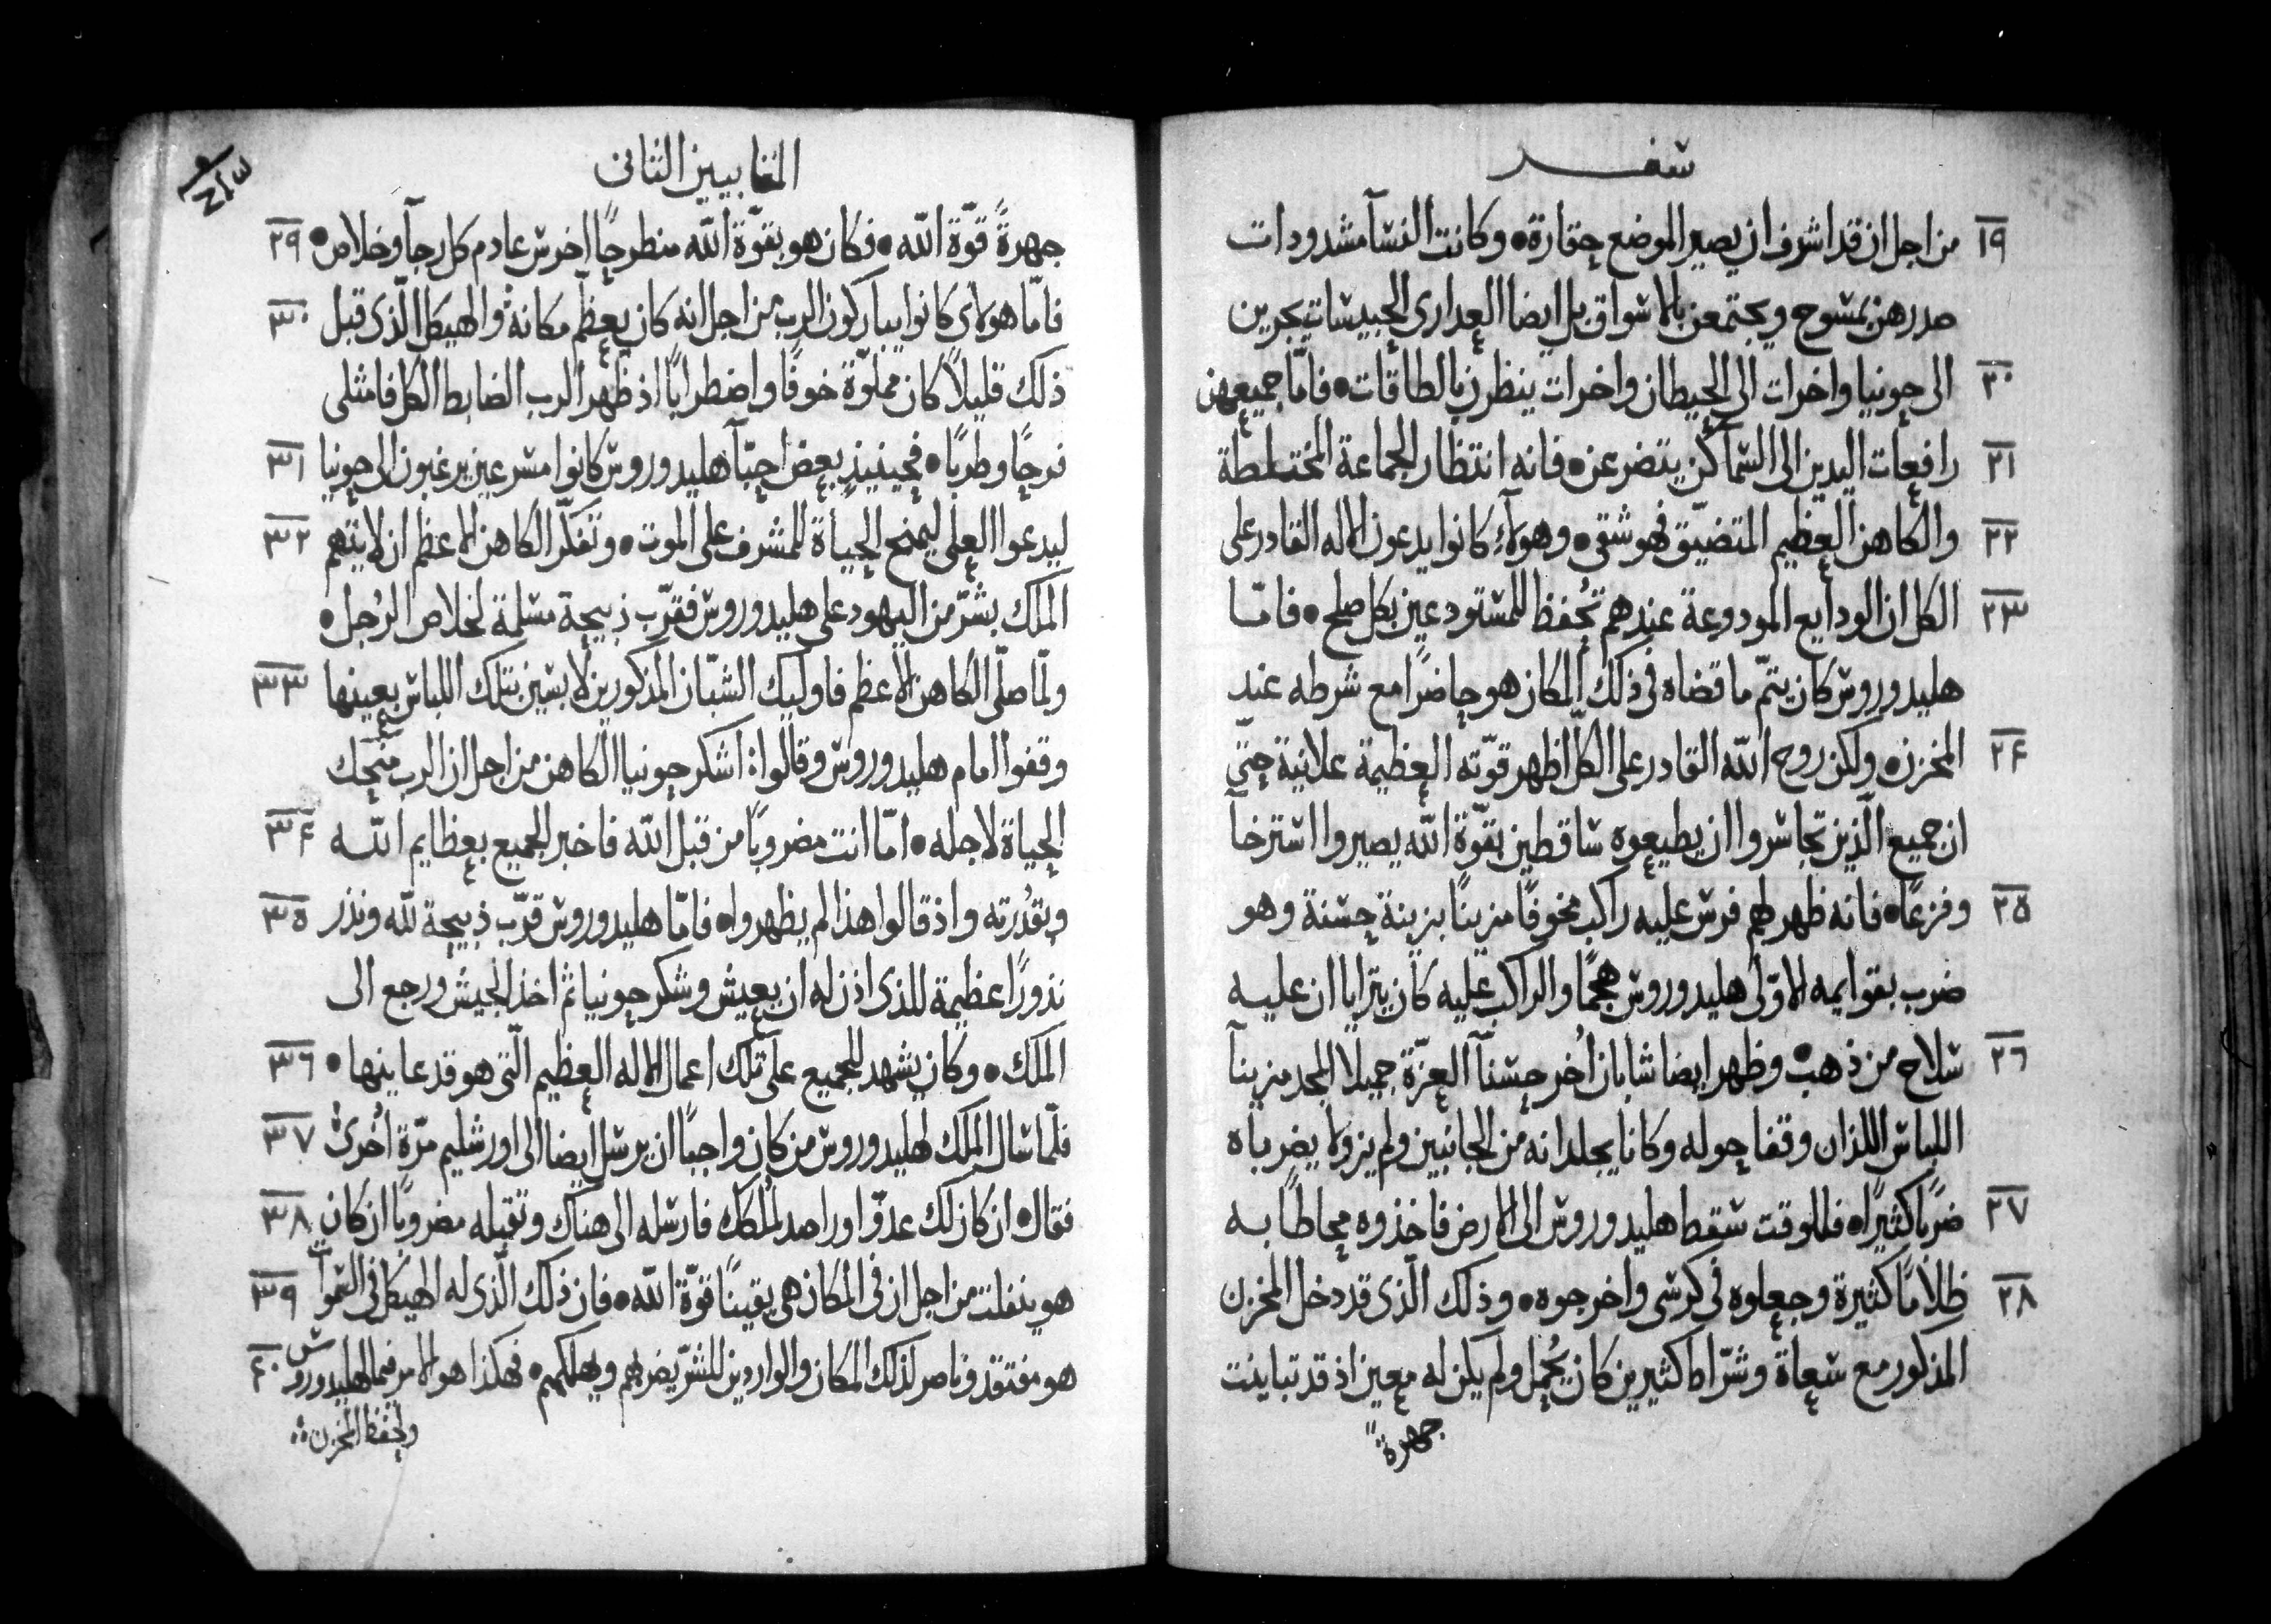 سفر
١٩ من اجل ان قد اشرف ان يصير الموضع حقارة • وكانت النسآ مشدودات
صدرهن بمسوح ويجتمعن بالاسواق بل ايضا العدارى الحبيسات يجرين
٢٠ الى حونيا واخرات الى الحيطان واخرات ينظرن بالطاقات • فامّا جميعهن
٢١ رافعات اليدين الى السما كن يتضرعن • فانه انتظار الجماعة المختلطة
٢٢ والكاهن العظيم المتضيّق فهو شقى • وهولآء كانوا يدعون الاله القادر على
٢٣ الكل ان الودايع المودوعة عندهم تُحفظ للمستودعين بكل صلح • فامّا
هليدوروس كان يتمّ ما قضاه فى ذلك المكان هو حاضرًا مع شرطه عند
٢٤ المخزن • ولكن روح الله القادر على الكلّ اظهر قوّته العظيمة علانية حتى
ان جميع الّذين تجاسروا ان يطيعوه ساقطين بقوّة الله يصيروا استرخآ
٢٥ وفزعًا • فانه ظهر لهم فرس عليه راكب مخوفًا مزينًا بزينة حسنة وهو
ضرب بقوايمه الاوّلى هليدوروس هجمًا والراكب عليه كان يترايا ان عليه
٢٦ سلاح من ذهب • وظهر ايضا شابان اُخر حسنآ العزّة جميلا المجد مزينآ
اللباس اللذان وقفا حوله وكانا يجلدانه من الجانبين ولم يزولا يضرباه
٢٧ ضربًا كثيرًا • فللوقت سقط هليدوروس الى الارض فاخذوه محاطًا به
٢٨ ظلامًا كثيرة وجعلوه فى كرسى واخرجوه • وذلك الّذى قد دخل المخزن
المذكور مع سعاة وشرّاط كثيرين كان يُحمل ولم يكن له معين اذ قد تباينت
جهرةً
المقابيين الثانى
جهرةً قوّة الله • فكان هو بقوّة الله منطوحًا اخرس عادم كل رجآ وخلاص • ٢٩
فامّا هولاى كانوا يباركون الرب من اجل انه كان يعظّم مكانه والهيكل الّذى قبل ٣٠
ذلك قليلاً كان مملوّة خوفًا واضطرابًا اذ ظهر الرب الضابط الكل فامتلى
فرحًا وطربًا • فحينيذٍ بعض احبّآ هليدوروس كانوا مسرعين يرغبون الى حونيا ٣١
ليدعوا العلى ليمنح الحياة للمشرف على الموت • وتفكّر الكاهن الاعظم ان لا يتهم ٣٢
الملك بشرّ من اليهود على هليدوروس فقرّب ذبيحة مسلمة لخلاص الرُجل •
ولمّا صلّى الكاهن الاعظم فاوليك الشبّان المذكورين لابسين بتلك اللباس بعينها ٣٣
وقفوا امام هليدوروس وقالوا • اشكر حونيا الكاهن من اجل ان الرب منحك
الحياة لاجله • امّا انت مضروبًا من قبل الله فاخبر الجميع بعظايم الله ٣٤
وبقدُرته واذ قالوا هذا لم يظهروا • فامّا هليدوروس قرّب ذبيحة لله ونذر ٣٥
نذورًا عظيمة للذى اذن له ان يعيش وشكر حونيا ثم اخذ الجيش ورجع الى
الملك • وكان يشهد للجميع على تلك اعمال الاله العظيم الّتى هو قد عاينها • ٣٦
فلمّا سال الملك لهليدوروس من كان واجبًا ان يرسل ايضا الى اورشليم مرّة اُخرى ٣٧
فقال • ان كان لك عدوّا او راصد لمُلكك فارسله الى هناك وتقبله مضروبًا ان كان ٣٨
هو ينفلت من اجل ان فى المكان هى يقينًا قوّة الله • فان ذلك الّذى له الهيكل فى السموات ٣٩
هو مفتقد وناصر لذلك المكان والواردين للشرّ يضربهم ويهلكهم • فهكذا هو الامر فيما لهليدوروس ٤٠
ولحفظ المخزن